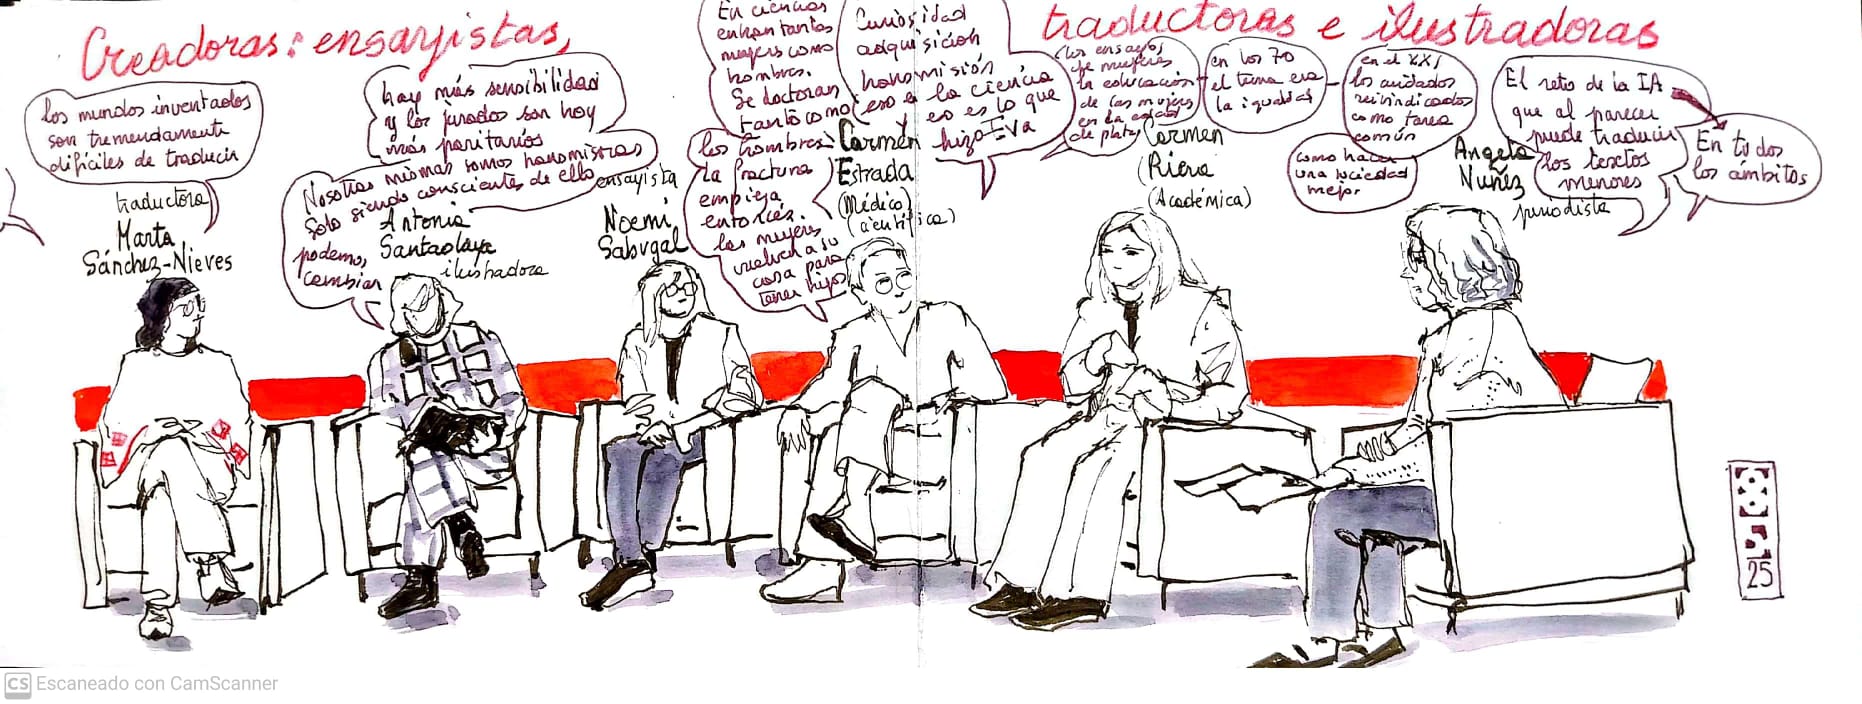 Creadoras: ensayistas,
traductoras e ilustradoras
los mundos inventados
son tremendamente
difíciles de traducir
traductora
Marta
Sánchez-Nieves
hay más sensibilidad
y los jurados son hoy
más paritarios
Nosotras mismas somos transmisoras
Solo siendo conscientes de ello
podemos
cambiar
Antonia
Santaolaya
ilustradora
ensayista
Noemí
Sabugal
En ciencias
entran tantas
mujeres como
hombres.
Se doctoran
tanto como
los hombres
la fractura
empieza
entonces.
las mujeres
vuelven a su
casa para
tener hijos
Curiosidad
adquisición
transmisión
eso es la ciencia
eso es lo que
hizo Eva
Carmen
Estrada
(Médico
científica)
los ensayos
de mujeres
la educación
de las mujeres
en la edad
de plata
en los 70
el tema era
la igualdad
en el XXI
los cuidados
reivindicados
como tarea
común
como hacer
una sociedad
mejor
Carmen
Riera
(Académica)
El reto de la IA
que al parecer
puede traducir
los textos
menores
En todos
los ámbitos
Angela
Nuñez
periodista
25
CS Escaneado con CamScanner